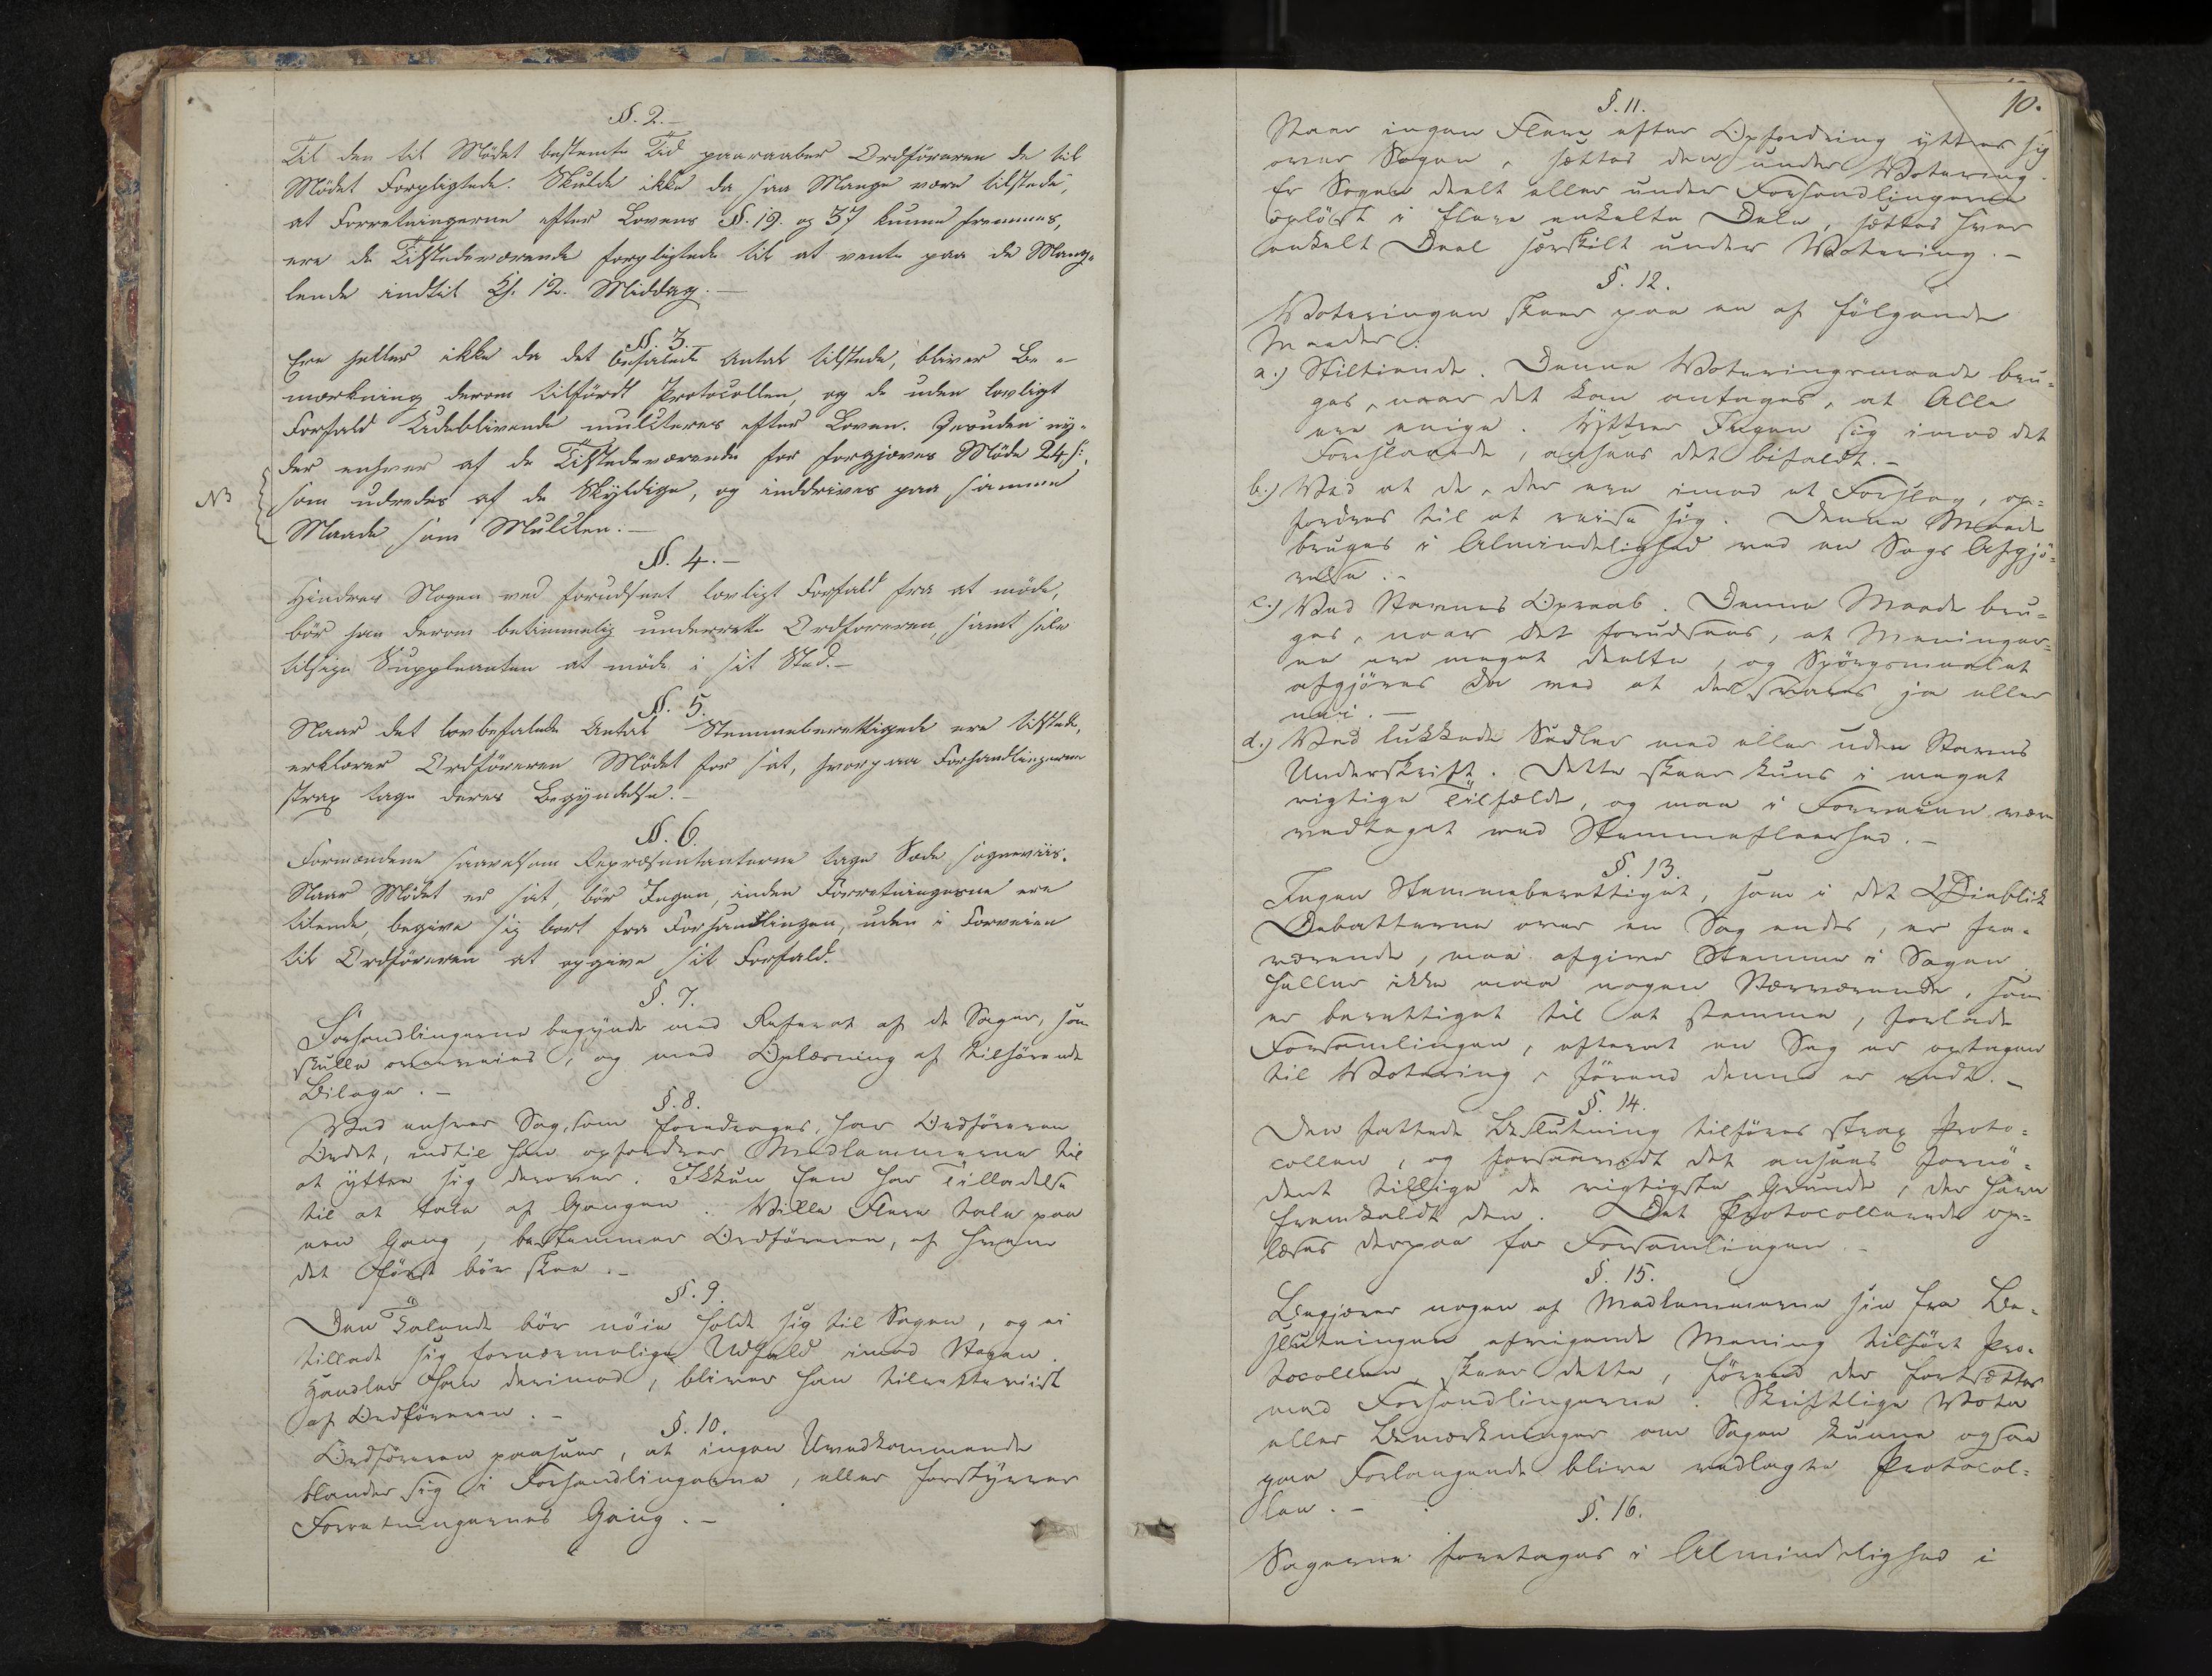 §. 2.-
Til den til Mödet bestemte Tid paaraaber Ordföreren de til
Mödet Forpligtede. Skulde ikke da saa Mange være tilstede,
at Forretningerne efter Lovens §. 19. og 37 kunne fremmes,
ere de Tilstedeværende forpligtede til at vente paa de Mang-
lende indtil Kl. 12. Middag.-
§. 3.-
Ere heller ikke da det befalede Antal tilstede, bliver Be-
mærkning derom tilfördt Protocollen, og de uden lovligt
Forfald Udeblivende mulcteres efter Loven. Desuden ny-
der enhver af de Tilstedeværende for forgjæves Möde 24 s:
NB som udredes af de Skyldige, og inddrives paa samme
Maade, som Mulcten.-
§. 4.-
Hindres Nogen ved forudseet lovligt Forfald fra at möde,
bör han derom betimmelig underrette Ordföreren, samt selv
tilsige Suppleanten at möde i sit Sted.-
§. 5.
Naar det lovbefalede Antal Stemmeberettigede ere tilstede,
erklærer Ordföreren Mödet for sat, hvorpaa Forhandlingerne
strax tage deres Begyndelse.-
§. 6.
Formændene saavelsom Repræsentanterne tage Sæde sogneviis.
Naar Mödet er sat, bör Ingen, inden Forretningerne ere
tilende, begive sig bort fra Forhandlingen, uden i Forveien
til Ordföreren at opgive sit Forfald.
§. 7.
Forhandlingerne begynde med Referat af de Sager, som
skulle overveies, og med Oplæsning af tilhörende
Bilage.-
§. 8.
Ved enhver Sag, som foredrages, har Ordföreren
Ordet, indtil han opfordrer Medlemmerne til
at yttre sig derover. Ikkun Een har Tilladelse
til at tale af Gangen. Ville Flere tale paa
een Gang, bestemmer Ordföreren, af hvem
det först bör skee.-
§. 9.
Den Talende bör nöie holde sig til Sagen, og ei
tillade sig fornærmelige Udfald imod Nogen.
Handler han derimod, bliver han tilretteviist
af Ordföreren.-
§. 10.
Ordföreren paaseer, at ingen Uvedkommende
blander sig i Forhandlingerne, eller forstyrrer
Forretningernes Gang.-
10.
§. 11.
Naar ingen Flere efter Opfordring yttrer sig
over Sagen, sættes den under Votering.
Er Sagen deelt eller under Forhandlingerne
oplöst i flere enkelte Dele, sættes hver
enkelt Deel særskilt under Votering.-
§. 12.
Voteringen skeer paa en af fölgende
Maader:
a.) Stiltiende. Denne Voteringsmaade bru-
ges, naar det kan antages, at Alle
ere enige. Yttrer Ingen sig imod det
Foreslaaede, ansees det bifaldt.-
b.) Ved at de, der ere imod et Forslag, op-
fordres til at reise sig. Denne Maade
bruges i Almindelighed ved en Sags Afgjö-
relse.-
c.) Ved Navnes Opraab. Denne Maade bru-
ges, naar det forudsees, at Meninger-
ne ere meget deelte, og Spörgsmaalet
afgjöres da med at der svares ja eller
nei.-
d.) Ved lukkede Sedler med eller uden Navns
Underskrift. Dette skeer kuns i meget
vigtige Tilfælde, og maa i Forveien være
vedtaget med Stemmefleerhed.-
§. 13.
Ingen Stemmeberettiget, som i det Öieblik
Debatterne over en Sag endes, er fra-
værende, maa afgive Stemme i Sagen
Heller ikke maa nogen Nærværende, som
er berettiget til at stemme, forlade
Forsamlingen, efterat en Sag er optagen
til Votering, förend denne er endt.-
§. 14.
Den fattede Beslutning tilföres strax Proto-
collen, og forsaavidt det ansees fornö-
dent tillige de vigtigste Grunde, der have
fremkaldt den. Det Protocollerede op-
læses derpaa for Forsamlingen.-
§. 15.
Begjærer nogen af Medlemmerne sin fra Be-
slutningen afvigende Mening tilfört Pro-
tocollen, skeer dette, förend der fortsættes
med Forhandlingerne. Skriftlige Vota
eller Bemærkninger om Sagen kunne ogsaa
paa Forlangende blive vedlagte Protocol-
len.-
§. 16.
Sagerne foretages i Almindelighed i